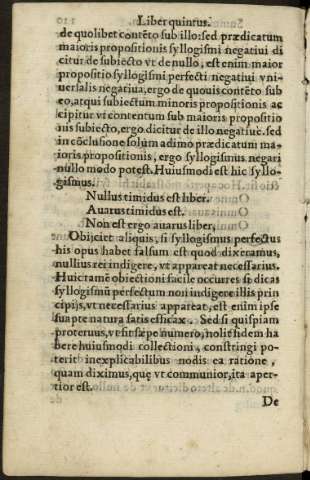 Liber quintus.
de quolibet contẽto sub illo: sed prædicatum
maioris propositionis syllogismi negatiui di
citur de subiecto vt de nullo, est enim maior
propositio syllogismi perfecti negatiui vni-
uersalis negatiua, ergo de quouis contẽto sub
eo, atqui subiectum minoris propositionis ac
cipitur vt contentum sub maioris propositio
nis subiecto, ergo dicitur de illo negatiuè. sed
in cõclusione solum adimo prædicatum ma-
ioris propositionis, ergo syllogismus negari
nullo modo potest. Huiusmodi est hic syllo-
gismus.
Nullus timidus est liber.
Auarus timidus est.
Non est ergo auarus liber,
Obijciet aliquis, si syllogismus perfectus
his opus habet falsum est quod dixeramus,
nullius rei indigere, vt appareat necessarius.
Huic tamẽ obiectioni facile occurres si dicas
syllogismũ perfectum non indigere illis prin
cipijs, vt necessarius appareat, est enim ipse
suapte natura satis efficax. Sed si quispiam
proteruus, vt fit sæpe numero, nolit fidem ha
bere huiusmodi collectioni, constringi po-
terit inexplicabilibus nodis ea ratione,
quam diximus, quę vt communior, ita aper-
tior est.
De